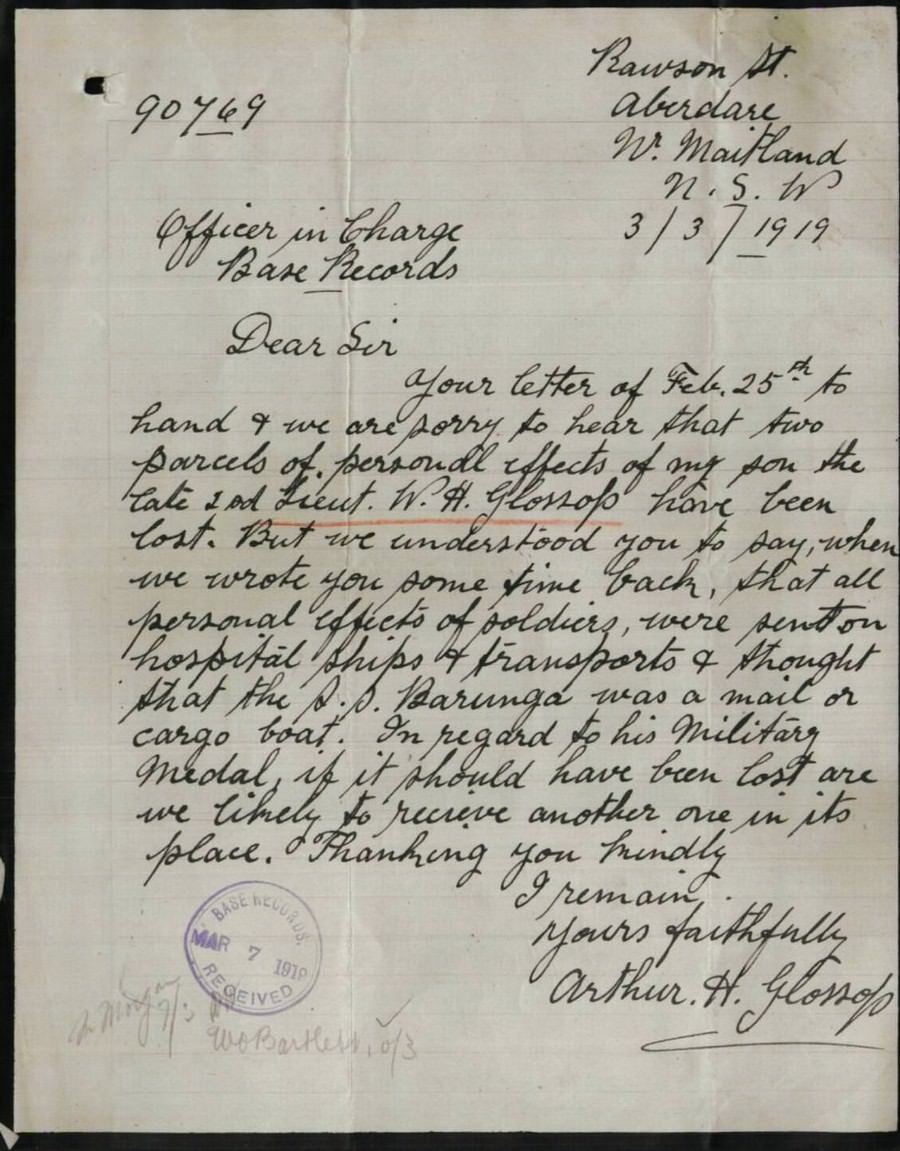 Rawson St.
90769
Aberdare
Wt. Maitland
N. S. W
3/3/1919
Officer in Charge
Base Records
Dear Sir
Your letter of Feb. 25th to
hand & we are sorry to hear that two
parcels of personal effects of my son the
late 2nd Lieut. W. H. Glossop have been
lost. But we understood you to say, when
we wrote you some time back, that all
personal effects of soldiers, were sent on
hospital ships & transports & thought
that the S.S. Barunga was a mail or
cargo boat. In regard to his Military
Medal, if it should have been lost are
we likely to recieve another one in its
place. Thanking you kindly
I remain.
Yours faithfully
Arthur. H. Glossop
BASE RECORDS.
MAR 7 1919
RECEIVED
7/3
WO Bartlett,